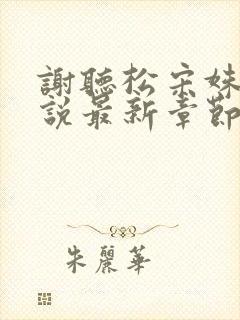 謝聽松宋妹
說最新章節
朱麗華